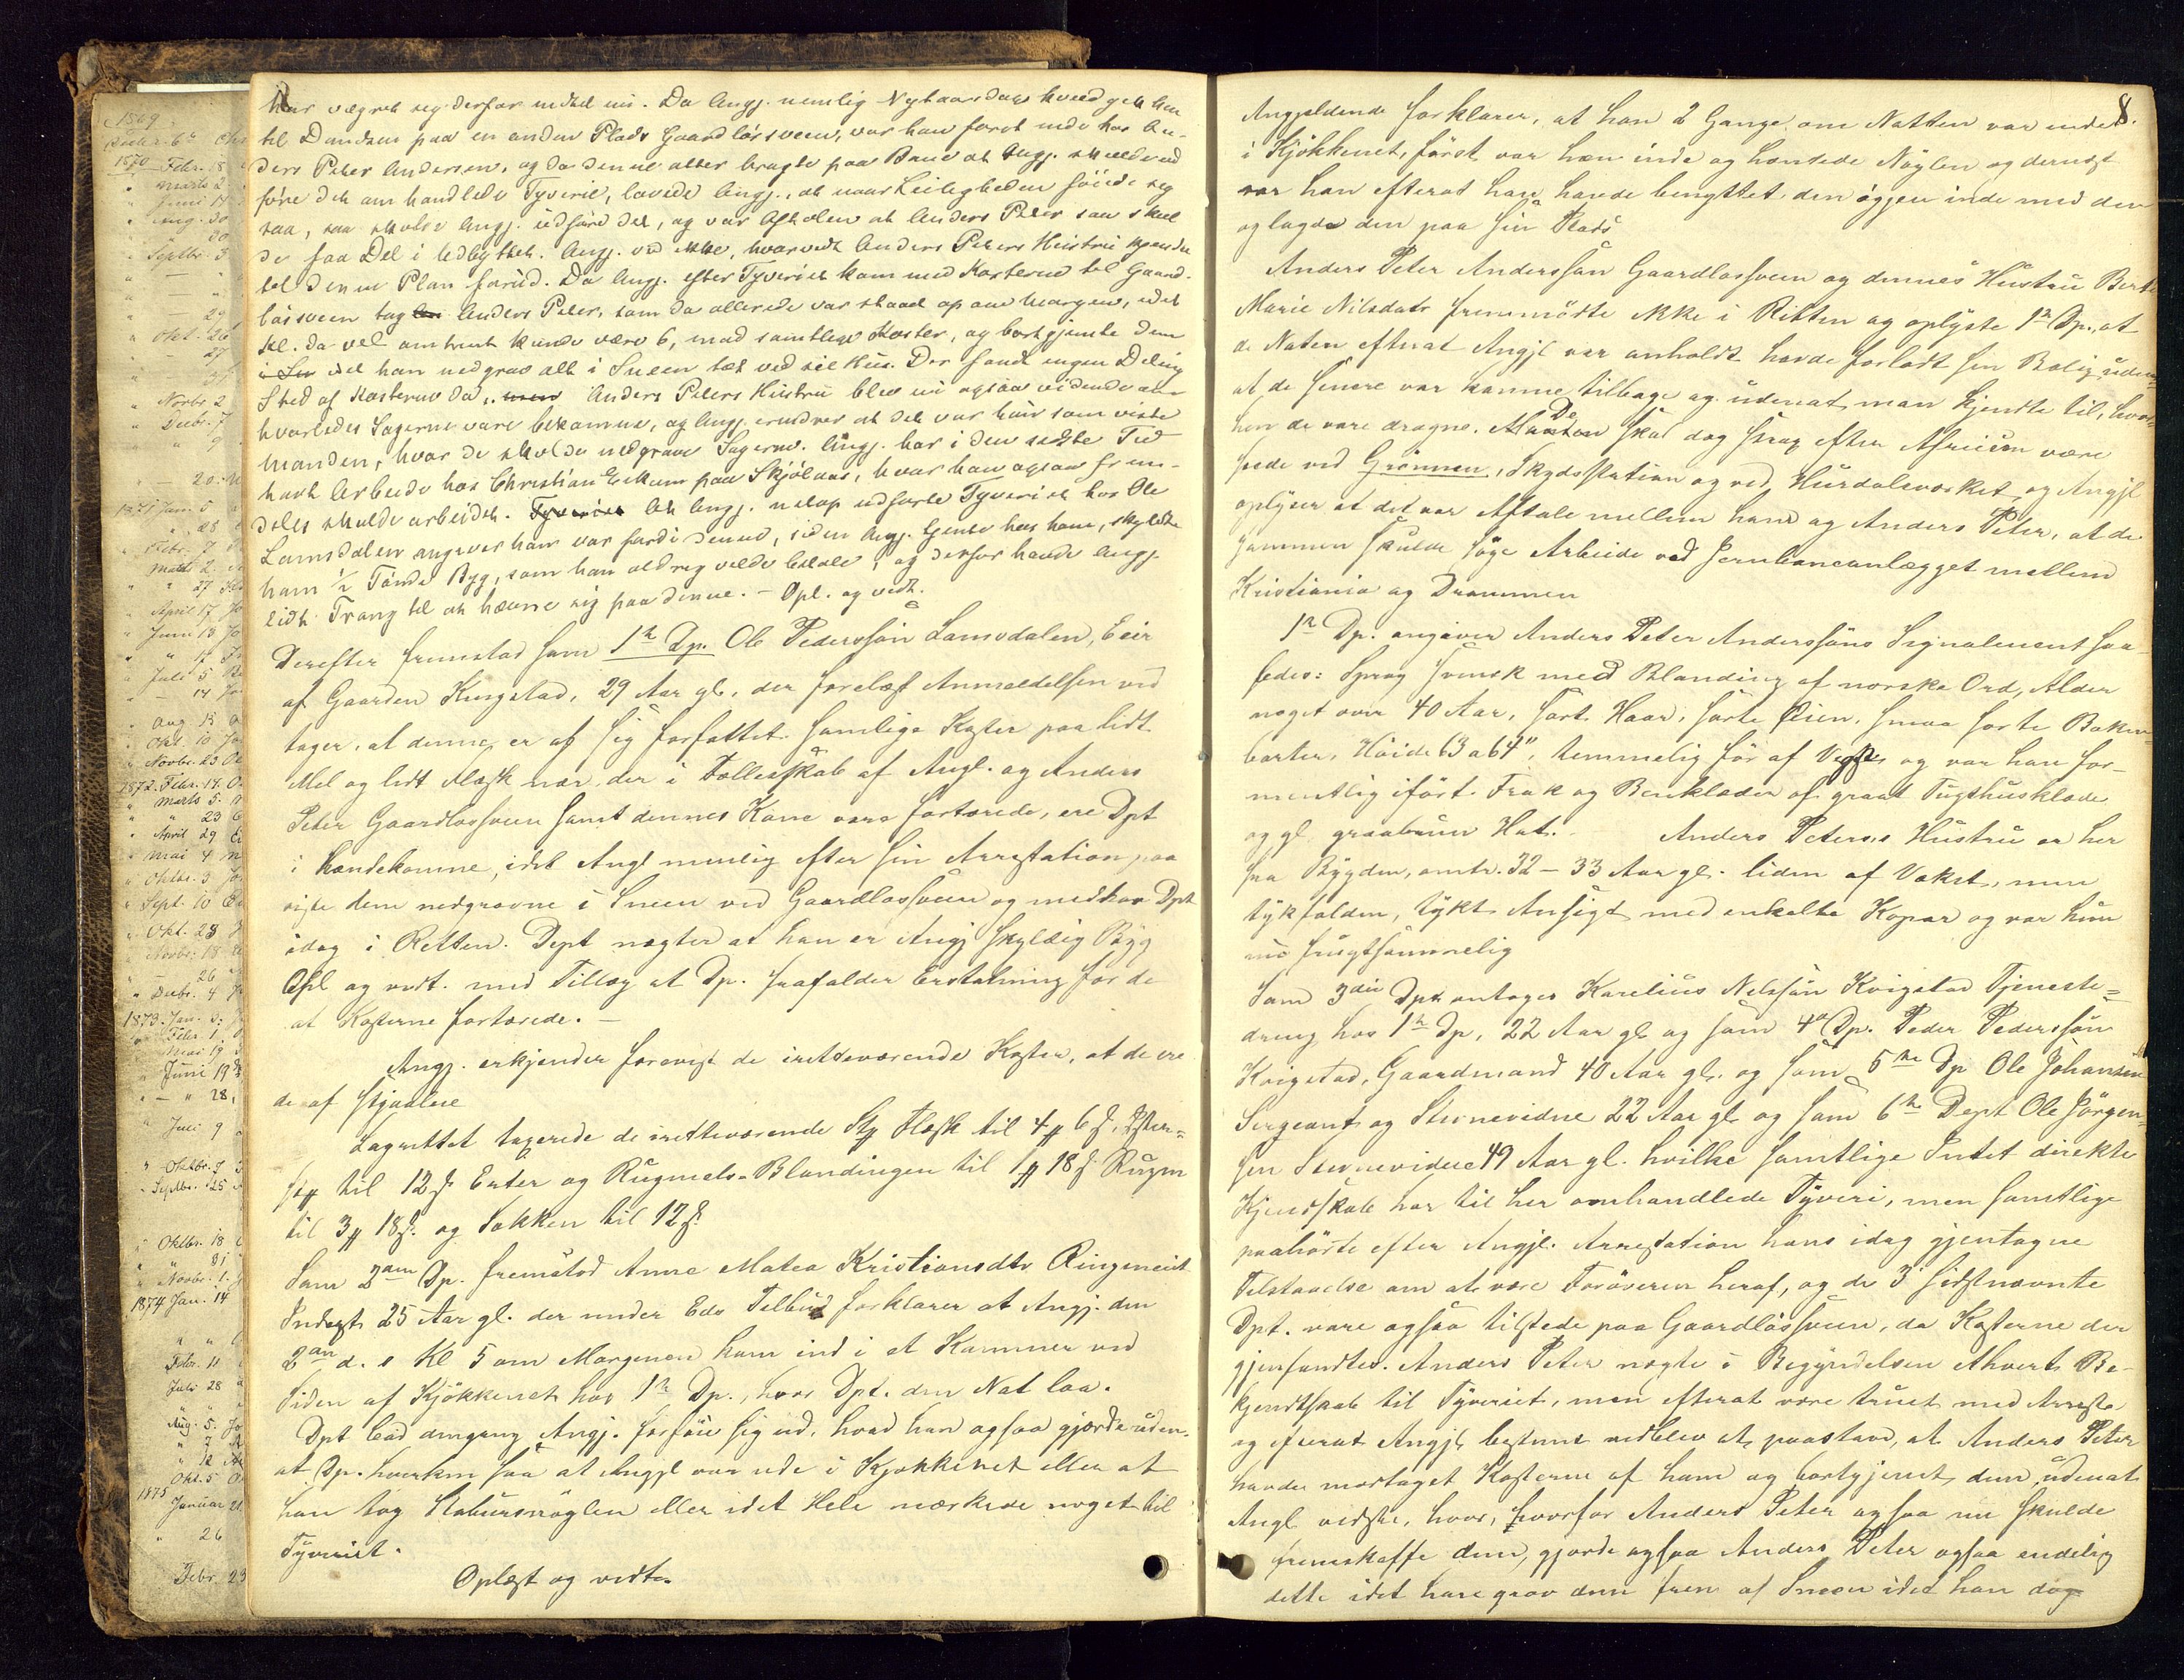 1869
Decbr. 6te
1870 Febr. 8
" Marts 2
" Juni 14
" Aug. 30
" 30
" Septbr. 3
" — "
" — 29
" Okt. 26
" 27
" 31
" Novbr 2
" Decbr. 7
" " 9
" — 20.
1871 Jan. 5
" " 28
" Febr. 7
" Marts 2
" " 27
" April 17
" Juni 13
" " 17
" Juli 5
" — 14
" Aug 15
" Okt. 10
" Novbr. 23
1872. Febr. 17.
" Marts 5.
" " 23
" April 29
" Mai 4
" Oktbr. 3
" Sept. 10
" Okt. 28
" Novbr. 18
" — 26
" Decbr. 4
1873. Jan. 3.
" Febr. 1.
" Mai 19
" Juni 19
" — " 28.
" Juli 9
" Oktbr. 9
" Septbr. 25
" Oktbr. 18
" " 31
" Novbr. 1.
1874 Jan. 14
" "
Febr. 11
Juli 28
" "
Aug. 5.
" 7
" 12
Okt. 5
1875
Januar 21
" 26
Febr. 23
har vægret sig derfor indtil nu. Da Angj. nemlig Nytaarsdags Kveld gik hen
til Dandsen paa en anden Plads Gaardløsveen, var han først inde hos An-
ders Peter Andersen, og da denne atter bragte paa Bane at Angj. skulde ud
føre det omhandlede Tyverie, lovede Angj., at naar Leiligheden føiede sig
saa, saa skulde Angj. udføre det, og var Aftalen at Anders Peter saa skul
de faa Del i Udbyttet. Angj. ved ikke, hvorvidt Anders Peters Hustru kjendte
til denne Plan forud. Da Angj. efter Tyveriet kom med Kosterne til Gaard-
løsveen tog Anders Peter, som da allerede var staaet op om Morgenen, idet
Kl. da vel omtrent kunde være 6, mod samtlige Koster, og bortgjemte dem
idet han nedgrov alt i Sneen tæt ved sit Hus. Der fandt ingen Deling
Sted af Kosterne da, Anders Peters Hustru blev nu ogsaa vidende om
hvorledes Sagerne vare bekomne, og Angj. erindrer at det var hun som viste
Manden, hvor de skulde nedgrave Sagerne. Angj. har i den sidste Tid
havt Arbeide hos Christian Eikum paa Skjølaas, hvor han ogsaa frem-
deles skulde arbeidet. At Angj. netop udførte Tyveriet hos Ole
Lamsdalen angiver han var fordi denne, siden Angj. tjente hos ham, skyldte
ham ½ Tønde Byg, som han aldrig vilde betale, og derfor havde Angj.
lidt Trang til at hævne sig paa denne. — Opl. og vedt.
Derefter fremstod som 1te Dp. Ole Pederssøn Lamsdalen, Eier
af Gaarden Kvigstad, 29 Aar gl., der forelæst Anmeldelsen ved
tager, at denne er af sig forfattet. Samtlige Koster paa lidt
Mel og lidt Flæsk nær, der i Fællesskab af Angj. og Anders
Peter Gaardløsveen samt dennes Kone vare fortærede, ere Dpt
i Hændekomne, idet Angj. nemlig efter sin Arrestation paa
viste dem nedgravne i Sneen ved Gaardløsveen og medhar Dpt
idag i Retten. Dept nægter at han er Angj skyldig Byg
Opl og vedt. med Tillæg at Dp. frafalder Erstatning for de
at Kosterne fortærede. —
Angj. erkjender forevist de iretteværende Koster, at de ere
de af stjaalne
Lagrettet taxerede de iretteværende Stkr Flæsk til 4 # 6 ß, Ister-
stkr til 12 ß Erter og Rugmels-Blandingen til 1 # 18 ß Rugen
til 3 # 18 ß. og Sækken til 12 ß.
Som 2den Dp. fremstod Anne Matea Kristiansdtr Ringeneiet
Inderst 25 Aar gl. der under Eds Tilbud forklarer at Angj. den
2den d. s Kl 5 om Morgenen kom ind i et Kammer ved
Siden af Kjøkkenet hos 1te Dp., hvor Dpt. den Nat laa.
Dpt bad dengang Angj. forføie sig ud, hvad han ogsaa gjorde uden-
at Dp. hverken saa at Angjl var ude i Kjøkkenet eller at
han tog Stabursnøglen eller idet Hele mærkede noget til
Tyveriet.
Oplæst og vedtt.
8.
Angjeldende forklarer, at han 2 Gange om Natten var inde
i Kjøkkenet, først var han inde og hentede Nøglen og dernæst
var han efterat han havde benyttet den igjen inde med den
og lagde den paa sin Plads
Anders Peter Anderssøn Gaardløsveen og dennes Hustru Berte
Marie Nilsdatr fremmødte ikke i Retten og oplyste 1te Dp., at
de Natten efterat Angjl var anholdt havde forladt sin Bolig uden
at de senere var komme tilbage og udenat man kjendte til, hvor-
hen de vare dragne. De skal dog strax efter Afreisen være
seede ved Grønnen, Skydsstation og ved Hurdalsværket, og Angjl
oplyser at det var Aftale mellem ham og Anders Peter, at de
sammen skulde søge Arbeide ved Jernbaneanlægget mellem
Kristiania og Drammen
1te Dp. angiver Anders Peter Anderssøns Signalement saa-
ledes: Sprog Svensk med Blanding af norske Ord, Alder
noget over 40 Aar, sort Haar, sorte Øien, smaa sorte Baken-
barter, Høide 63 a 64", temmelig før af Vext og var han for-
mentlig iført Frak og Benklæder af graat Tugthusklæde
og gl. graabrun Hat. Anders Peters's Hustru er her
fra Bygden, omtr. 32 — 33 Aar gl. liden af Vækst, men
tykfalden, tykt Ansigt med enkelte Kopar og var hun
nu frugtsommelig
Som 3die Dpt antoges Karelius Nilssøn Kvigstad Tjeneste-
dreng hos 1te Dp, 22 Aar gl og som 4de Dp. Peder Pederssøn
Kvigstad, Gaardmand 40 Aar gl. og som 5te Dp Ole Johansen
Sergeant og Stevnevidne 22 Aar gl og som 6te Dept Ole Jørgen-
sen Stevnevidne 49 Aar gl. hvilke samtlige Intet direkte
Kjendskab har til her omhandlede Tyveri, men samtlige
paahørte efter Angjl. Arrestation hans idag gjentagne
Tilstaaelse om at være Forøveren heraf, og de 3 sidstnævnte
Dpt. vare ogsaa tilstede paa Gaardløsveen, da Kosterne der
gjenfandtes. Anders Peter nægte i Begyndelsen ethvert Be-
kjendtskab til Tyveriet, men efterat være truet med Arrest
og efterat Angjl bestemt vedblev at paastaa, at Anders Peter
havde modtaget Kosterne af ham og bortgjemt dem udenat
Angl vidste, hvor, hvorfor Anders Peter ogsaa nu skulde
fremskaffe dem, gjorde ogsaa Anders Peter ogsaa endelig
dette idet han grov dem frem af Sneen idet han dog